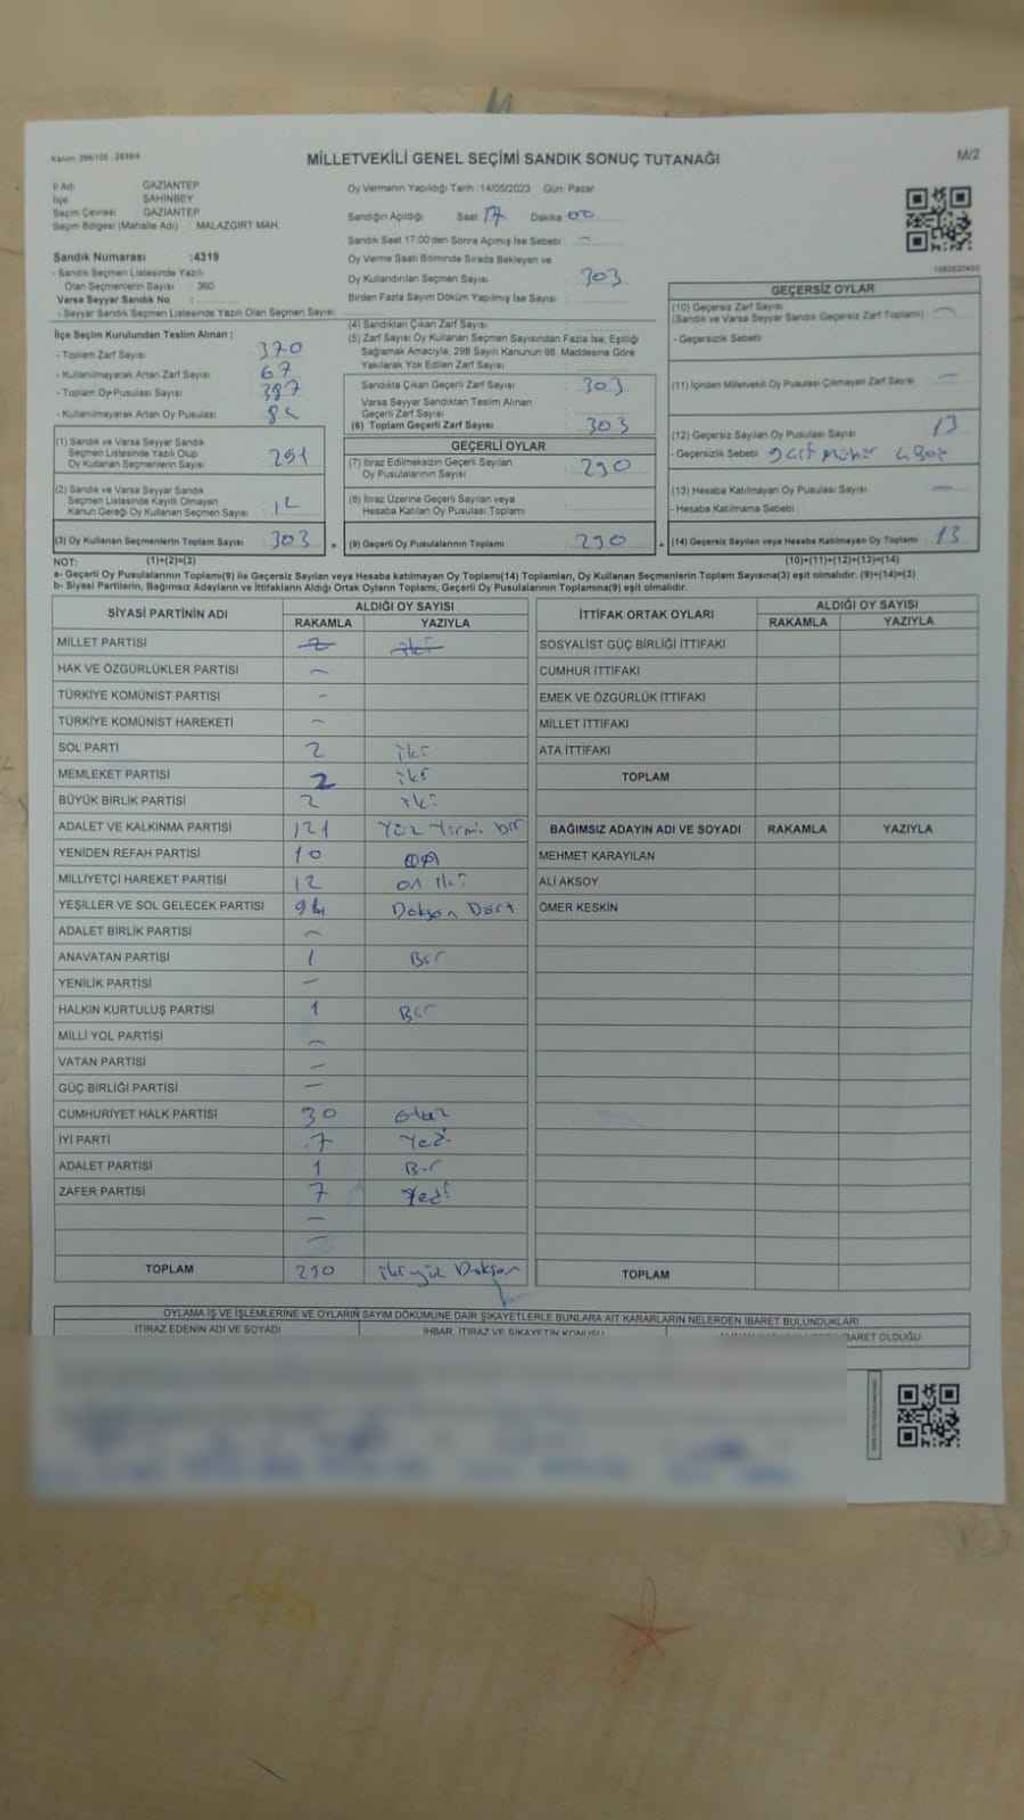 MİLLETVEKİLİ GENEL SEÇİMİ SANDIK SONUÇ TUTANAĞI
M/2
İl Adı GAZİANTEP
İlçe ŞAHİNBEY
Seçim Çevresi GAZİANTEP
Seçim Bölgesi (Mahalle Adı) MALAZGIRT MAH.
Sandık Numarası :4319
- Sandık Seçmen Listesinde Yazılı
Olan Seçmenlerin Sayısı : 360
Varsa Seyyar Sandık No :
- Seyyar Sandık Seçmen Listesinde Yazılı Olan Seçmen Sayısı
Oy Vermenin Yapıldığı Tarih : 14/05/2023 Gün: Pazar
Sandığın Açıldığı Saat 17 Dakika 00
Sandık Saat 17:00'den Sonra Açılmış İse Sebebi : -
Oy Verme Saati Bitiminde Sırada Bekleyen ve
Oy Kullandırılan Seçmen Sayısı : 303
Birden Fazla Sayım Döküm Yapılmış İse Sayısı
İlçe Seçim Kurulundan Teslim Alınan :
- Toplam Zarf Sayısı 370
- Kullanılmayarak Artan Zarf Sayısı 67
- Toplam Oy Pusulası Sayısı
- Kullanılmayarak Artan Oy Pusulası
(1) Sandık ve Varsa Seyyar Sandık
Seçmen Listesinde Yazılı Olup
Oy Kullanan Seçmenlerin Sayısı 291
(2) Sandık ve Varsa Seyyar Sandık
Seçmen Listesinde Kayıtlı Olmayan
Kanun Gereği Oy Kullanan Seçmen Sayısı 12
(3) Oy Kullanan Seçmenlerin Toplam Sayısı 303
(1)+(2)=(3)
(4) Sandıktan Çıkan Zarf Sayısı
(5) Zarf Sayısı Oy Kullanan Seçmen Sayısından Fazla İse, Eşitliği
Sağlamak Amacıyla, 298 Sayılı Kanunun 98. Maddesine Göre
Yakılarak Yok Edilen Zarf Sayısı
Sandıkta Çıkan Geçerli Zarf Sayısı : 303
Varsa Seyyar Sandıktan Teslim Alınan
Geçerli Zarf Sayısı
(6) Toplam Geçerli Zarf Sayısı : 303
GEÇERLİ OYLAR
(7) İtiraz Edilmeksizin Geçerli Sayılan
Oy Pusulalarının Sayısı : 290
(8) İtiraz Üzerine Geçerli Sayılan veya
Hesaba Katılan Oy Pusulası Toplamı
(9) Geçerli Oy Pusulalarının Toplamı 290
GEÇERSİZ OYLAR
(10) Geçersiz Zarf Sayısı
(Sandık ve Varsa Seyyar Sandık Geçersiz Zarf Toplamı) -
- Geçersizlik Sebebi
(11) İçinden Milletvekili Oy Pusulası Çıkmayan Zarf Sayısı -
(12) Geçersiz Sayılan Oy Pusulası Sayısı 13
- Geçersizlik Sebebi
(13) Hesaba Katılmayan Oy Pusulası Sayısı -
- Hesaba Katılmama Sebebi
(14) Geçersiz Sayılan veya Hesaba Katılmayan Oy Toplamı 13
(10)+(11)+(12)+(13)=(14)
NOT:
a- Geçerli Oy Pusulalarının Toplamı(9) ile Geçersiz Sayılan veya Hesaba katılmayan Oy Toplamı(14) Toplamları, Oy Kullanan Seçmenlerin Toplam Sayısına(3) eşit olmalıdır. (9)+(14)=(3)
b- Siyasi Partilerin, Bağımsız Adayların ve İttifakların Aldığı Ortak Oyların Toplamı, Geçerli Oy Pusulalarının Toplamına(9) eşit olmalıdır.
SİYASİ PARTİNİN ADI ALDIĞI OY SAYISI
RAKAMLA YAZIYLA
MİLLET PARTİSİ 2 iki
HAK VE ÖZGÜRLÜKLER PARTİSİ -
TÜRKİYE KOMÜNİST PARTİSİ -
TÜRKİYE KOMÜNİST HAREKETİ -
SOL PARTİ 2 iki
MEMLEKET PARTİSİ 2 iki
BÜYÜK BİRLİK PARTİSİ 2 iki
ADALET VE KALKINMA PARTİSİ 121 Yüz Yirmi bir
YENİDEN REFAH PARTİSİ 10 on
MİLLİYETÇİ HAREKET PARTİSİ 12 on iki
YEŞİLLER VE SOL GELECEK PARTİSİ 94 Doksan Dört
ADALET BİRLİK PARTİSİ -
ANAVATAN PARTİSİ 1 Bir
YENİLİK PARTİSİ -
HALKIN KURTULUŞ PARTİSİ 1 Bir
MİLLİ YOL PARTİSİ -
VATAN PARTİSİ -
GÜÇ BİRLİĞİ PARTİSİ -
CUMHURİYET HALK PARTİSİ 30 otuz
İYİ PARTİ 7 Yedi
ADALET PARTİSİ 1 Bir
ZAFER PARTİSİ 7 Yedi
-
-
TOPLAM 290 ikiyüz Doksan
İTTİFAK ORTAK OYLARI ALDIĞI OY SAYISI
RAKAMLA YAZIYLA
SOSYALİST GÜÇ BİRLİĞİ İTTİFAKI
CUMHUR İTTİFAKI
EMEK VE ÖZGÜRLÜK İTTİFAKI
MİLLET İTTİFAKI
ATA İTTİFAKI
TOPLAM
BAĞIMSIZ ADAYIN ADI VE SOYADI RAKAMLA YAZIYLA
MEHMET KARAYILAN
ALİ AKSOY
ÖMER KESKİN
TOPLAM
OYLAMA İŞ VE İŞLEMLERİNE VE OYLARIN SAYIM DÖKÜMÜNE DAİR ŞİKAYETLERLE BUNLARA AİT KARARLARIN NELERDEN İBARET BULUNDUKLARI
İTİRAZ EDENİN ADI VE SOYADI İHBAR, İTİRAZ VE ŞİKAYETİN KONUSU İBARET OLDUĞU